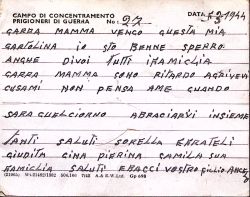 CAMPO DI CONCENTRAMENTO
PRIGIONERI DI GUERRA No: 27 DATA 1944
GARRA MAMMA VENGO QUESTA MIA
GARTOLINA IO STO BENNE SPERRO
ANGHE DIVOI TUTTI FAMIGLIA
GARRA MAMMA SONO RITARDO AGRIVEVI
CUSAMI NON PENSA AME QUANDO
SARA GUELGIORNO ABRACIARVI INSIEME
TANTI SALUTI SORELLA ERRATELI
GIUDITA GINA PIERINA CAMILA SUA
FAMIGLIA SALUTI EBACCI VOSTRO FIGLIO